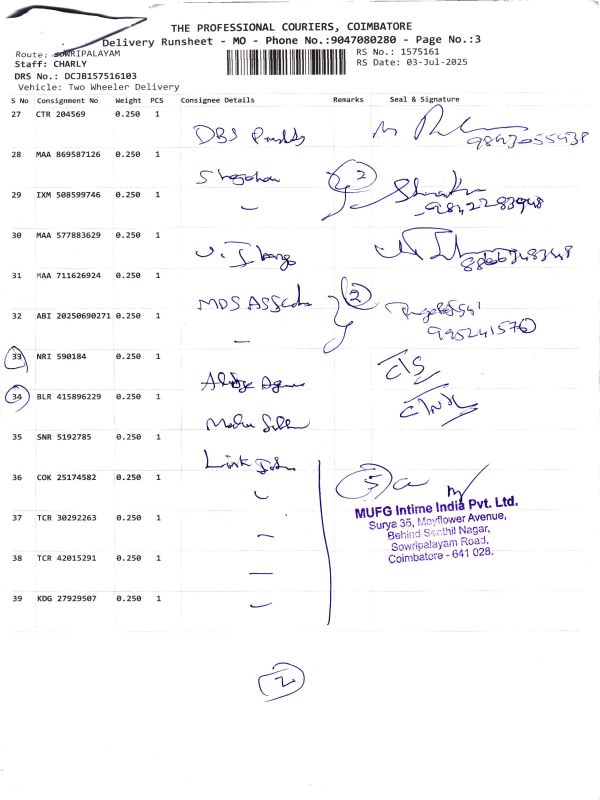 THE PROFESSIONAL COURIERS, COIMBATORE
Delivery Runsheet - MO - Phone No.:9047080280 - Page No.:3
Route: SOWRIPALAYAM
RS No.: 1575161
Staff: CHARLY
RS Date: 03-Jul-2025
DRS No.: DCJB157516103
Vehicle: Two Wheeler Delivery
S No Consignment No Weight PCS Consignee Details Remarks Seal & Signature
27 CTR 204569 0.250 1
DBS
28 MAA 869587126 0.250 1
2
29 IXM 508599746 0.250 1
9842283948
30 MAA 577883629 0.250 1
31 MAA 711626924 0.250 1
MDS
2
32 ABI 20250690271 0.250 1
33 NRI 590184 0.250 1
34 BLR 415896229 0.250 1
35 SNR 5192785 0.250 1
Link
36 COK 25174582 0.250 1
5
MUFG Intime India Pvt. Ltd.
Surya 35, Mayflower Avenue,
Behind Senthil Nagar,
Sowripalayam Road,
Coimbatore - 641 028.
37 TCR 30292263 0.250 1
38 TCR 42015291 0.250 1
39 KDG 27929507 0.250 1
2